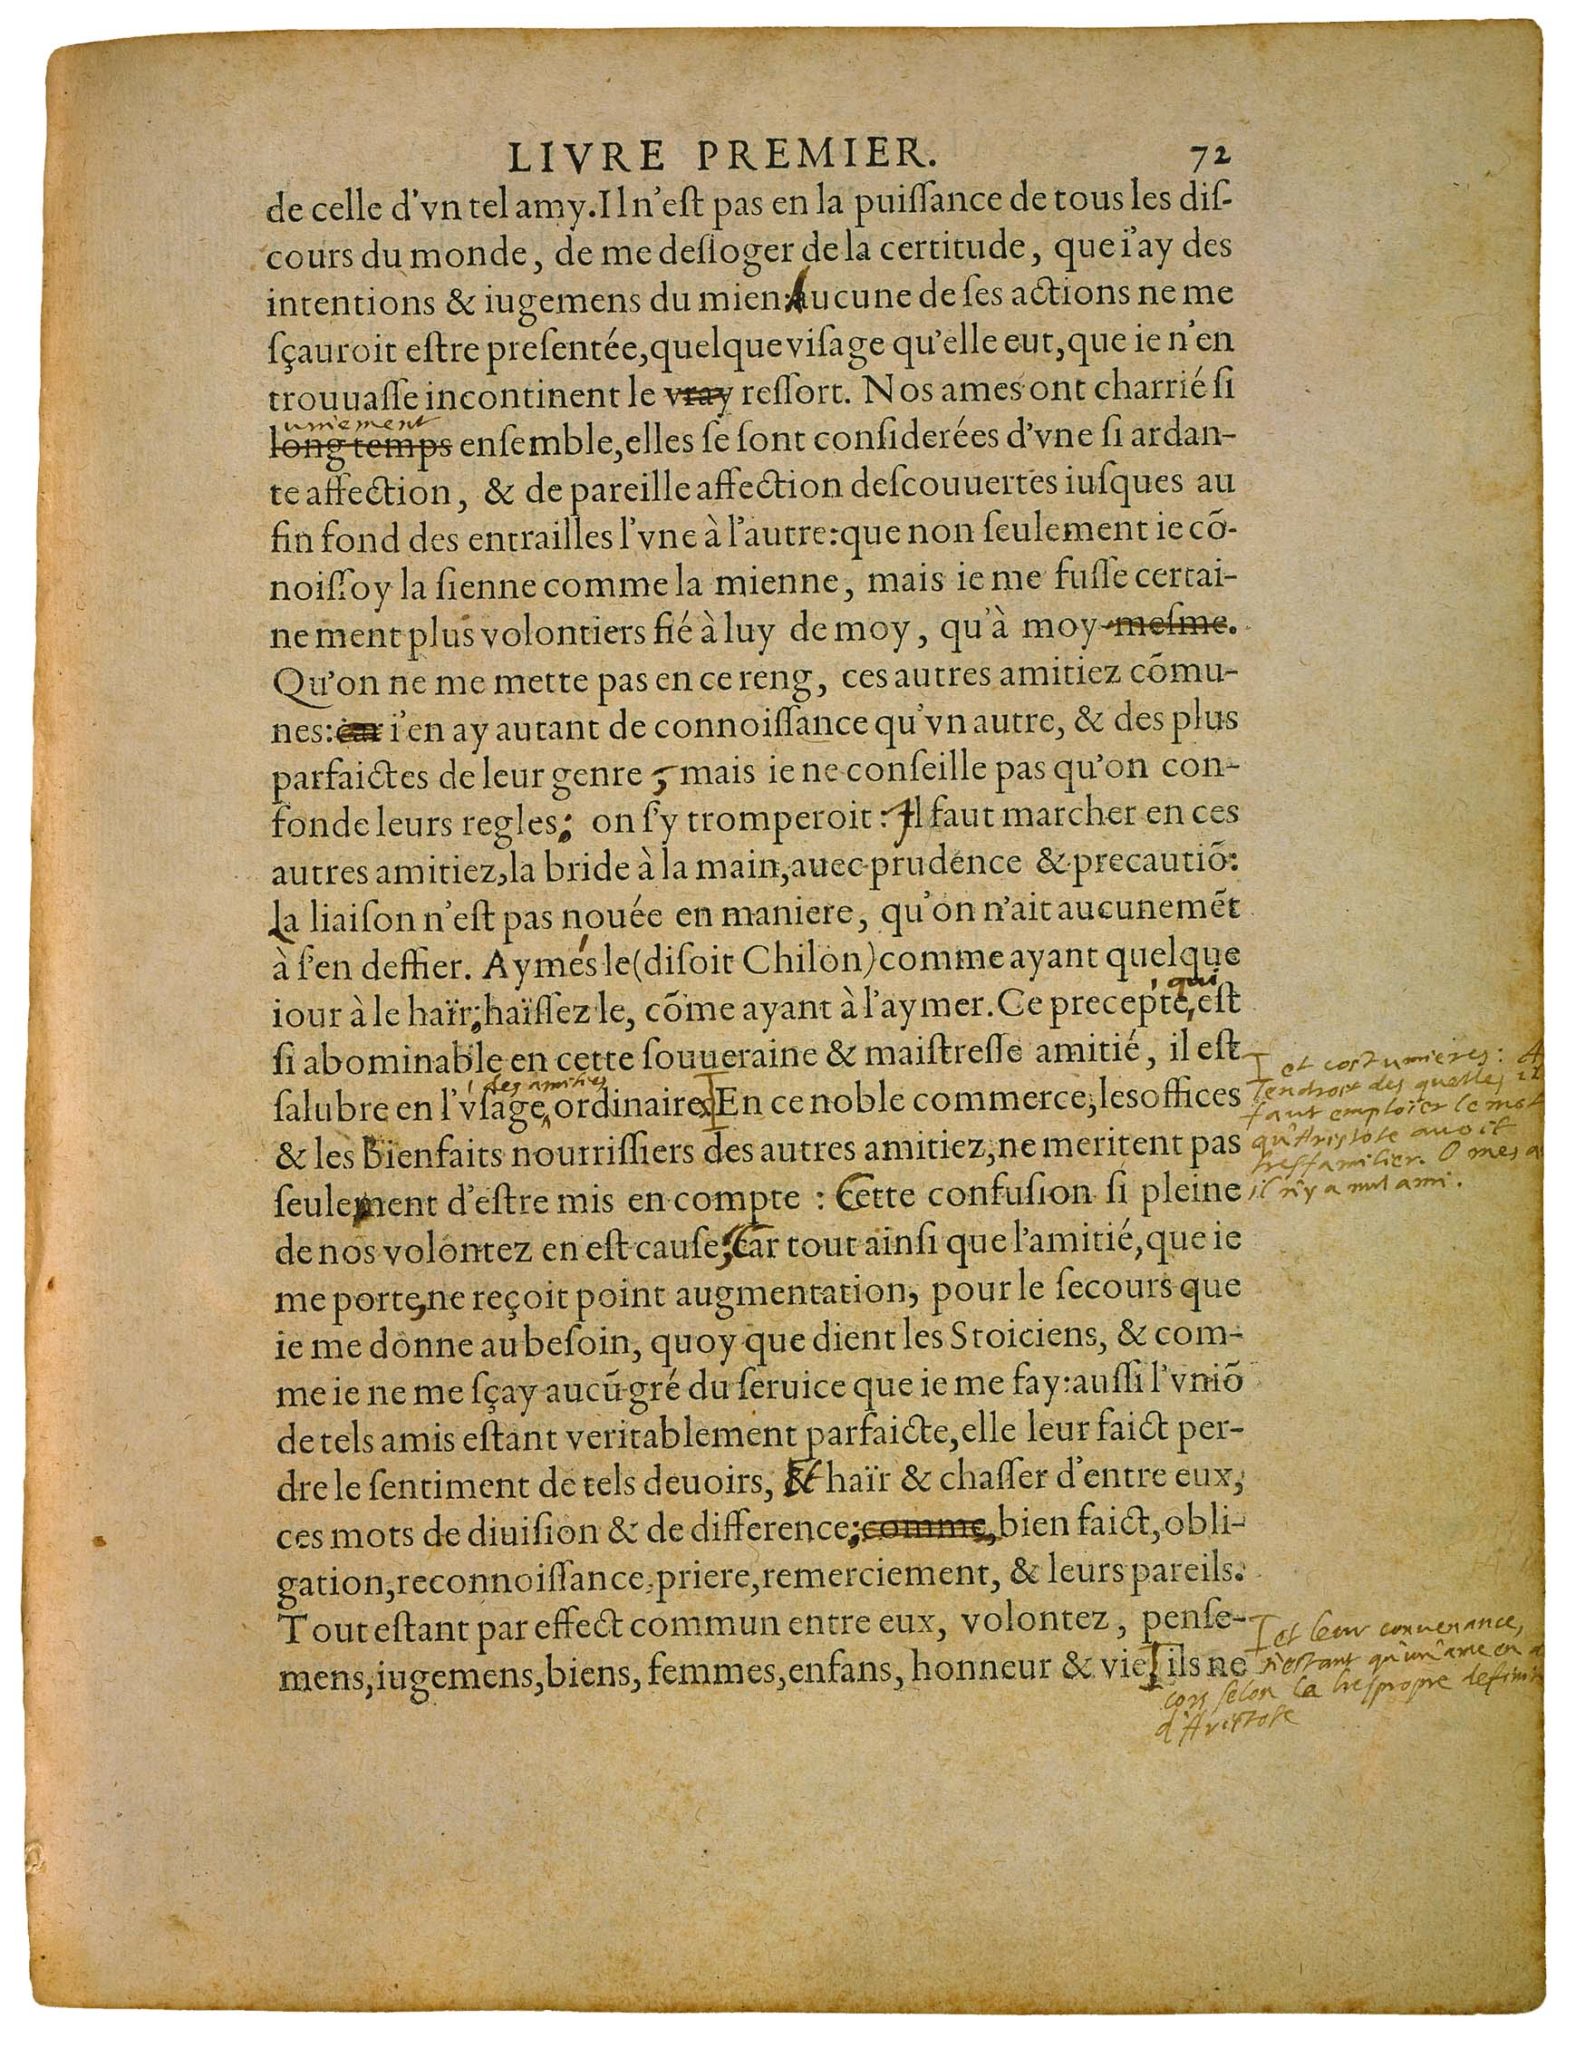 LIVRE PREMIER. 72
de celle d'vn tel amy. Il n'eſt pas en la puiſſance de tous les diſ-
cours du monde, de me deſloger de la certitude, que i'ay des
intentions & iugemens du mien: Aucune de ſes actions ne me
ſçauroit eſtre preſentée, quelque viſage qu'elle eut, que ie n'en
trouuaſſe incontinent le vray reſſort. Nos ames ont charrié ſi
uniement
long temps enſemble, elles ſe ſont conſiderées d'vne ſi ardan-
te affection, & de pareille affection deſcouuertes iuſques au
fin fond des entrailles l'vne à l'autre: que non ſeulement ie cō-
noiſſoy la ſienne comme la mienne, mais ie me fuſſe certai-
nement plus volontiers fié à luy de moy, qu'à moy-meſme.
Qu'on ne me mette pas en ce reng, ces autres amitiez cōmu-
nes: car i'en ay autant de connoiſſance qu'vn autre, & des plus
parfaictes de leur genre, mais ie ne conſeille pas qu'on con-
fonde leurs regles; on ſ'y tromperoit: Il faut marcher en ces
autres amitiez, la bride à la main, auec prudence & precautiō:
la liaiſon n'eſt pas nouée en maniere, qu'on n'ait aucunemēt
à ſ'en deffier. Aymés le (diſoit Chilon) comme ayant quelque
iour à le haïr; haïſſez le, cōme ayant à l'aymer. Ce precepte, qui eſt
ſi abominable en cette ſouueraine & maiſtreſſe amitié, il eſt
ſalubre en l'vſage des amities ordinaires En ce noble commerce, les offices
et costumieres:
l'endroit des quelles il
faut emploier le mot
qu'Aristote avoit
tresfamilier. O mes
il n'y a nul ami.
& les bienfaits nourriſſiers des autres amitiez, ne meritent pas
ſeulement d'eſtre mis en compte: Cette confuſion ſi pleine
de nos volontez en eſt cauſe, Car tout ainſi que l'amitié, que ie
me porte, ne reçoit point augmentation, pour le ſecours que
ie me donne au beſoin, quoy que dient les Stoiciens, & com-
me ie ne me ſçay aucū gré du ſeruice que ie me fay: auſſi l'vniō
de tels amis eſtant veritablement parfaicte, elle leur faict per-
dre le ſentiment de tels deuoirs, & haïr & chaſſer d'entre eux,
ces mots de diuiſion & de difference; comme, bien faict, obli-
gation, reconnoiſſance, priere, remerciement, & leurs pareils.
Tout eſtant par effect commun entre eux, volontez, penſe-
mens, iugemens, biens, femmes, enfans, honneur & vie ils ne
et leur convenance,
n'estant qu'un'ame en
cors selon la trespropre
d'Aristote